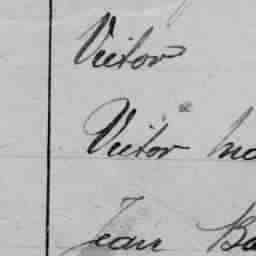 Victor
Victor
Jean